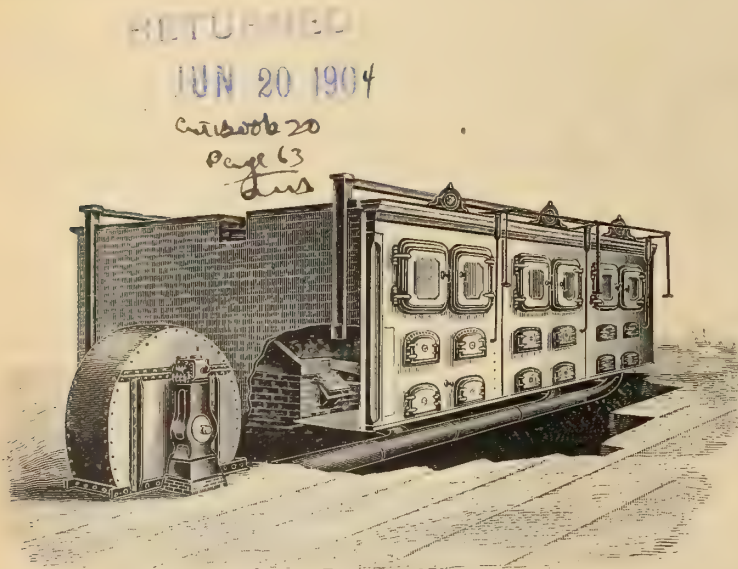 RETURNED
JUN 20 1904
Cut book 20
Page 63